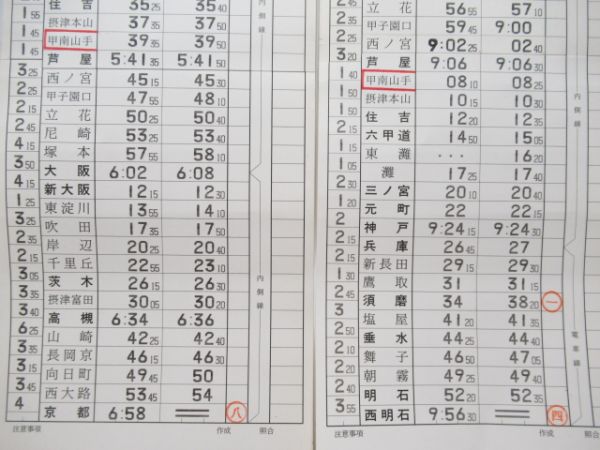 住吉 35 25 35 40
1 55 摂津本山 37 35 37 50
1 45 甲南山手 39 35 39 50
1 45 芦屋 5:41 35 5:41 50
3 25 西ノ宮 45 15 45 30
2 25 甲子園口 47 55 48 10
2 立花 50 25 50 40
2 45 尼崎 53 25 53 40
4 15 塚本 57 55 58 10
3 50 大阪 6:02 6:08
新大阪 12 15 12 30
東淀川 13 55 14 10
吹田 17 35 17 50
2 35 岸辺 20 25 20 40
2 15 千里丘 22 55 23 10
3 05 茨木 26 15 26 30
3 30 摂津富田 30 05 30 20
3 40 高槻 6:34 6:36
山崎 42 25 42 40
3 35 長岡京 46 15 46 30
3 15 向日町 49 45 50
3 45 西大路 53 45 54
4 京都 6:58
内側線
八
注意事項 作成 照合
立花 56 55 57 10
甲子園口 59 45 9:00
西ノ宮 9:02 25 02 40
芦屋 9:06 9:06 30
1 40 甲南山手 08 10 08 25
1 50 摂津本山 10 15 10 30
住吉 12 20 12 35
六甲道 14 50 15 05
東灘 ... 16 20
灘 17 25 17 40
三ノ宮 20 10 20 40
元町 22 22 15
神戸 9:24 15 9:24 30
2 15 兵庫 26 45 27
新長田 29 15 29 30
鷹取 31 31 15
2 45 須磨 34 38 20
塩屋 41 20 41 35
垂水 44 25 44 40
舞子 46 50 47 05
朝霧 49 25 49 40
明石 52 20 52 35
3 55 西明石 9:56 30
内側線
電車線
一
四
注意事項 作成 照合